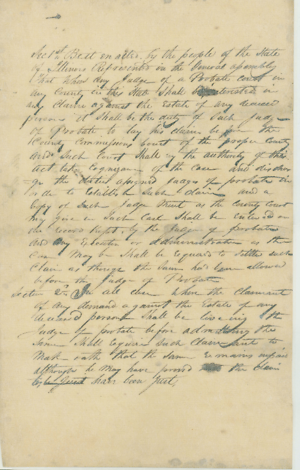 Sec 1st Be it enacted by the people of the State
of Illinois represented in the General assembly
That when any Judge of a Probate court in
any County in this State shall be interested in
any claim against the estate of any deceased
person it shall be the duty of such Judge
of Probate to lay his claim before the
County Commissioners court of the proper county
and such Court shall by the authority of this
act take cognizance of the case and
the
to and a
copy of such Judge ment as the County court
may give in such case shall be entered on
the record kept by the Judge of probate
and any Executor or administrator as the
case may be shall be required to settle such
claim as though the same had been allowed
before the Judge of Probate
Section 2 In all cases when the claimant
of any demand against the Estate of any
deceased person shall be the
Judge of probate before allowing the
same shall require such claimant to
make oath that the same remains unpaid
although he may have proved the claim
to have been just